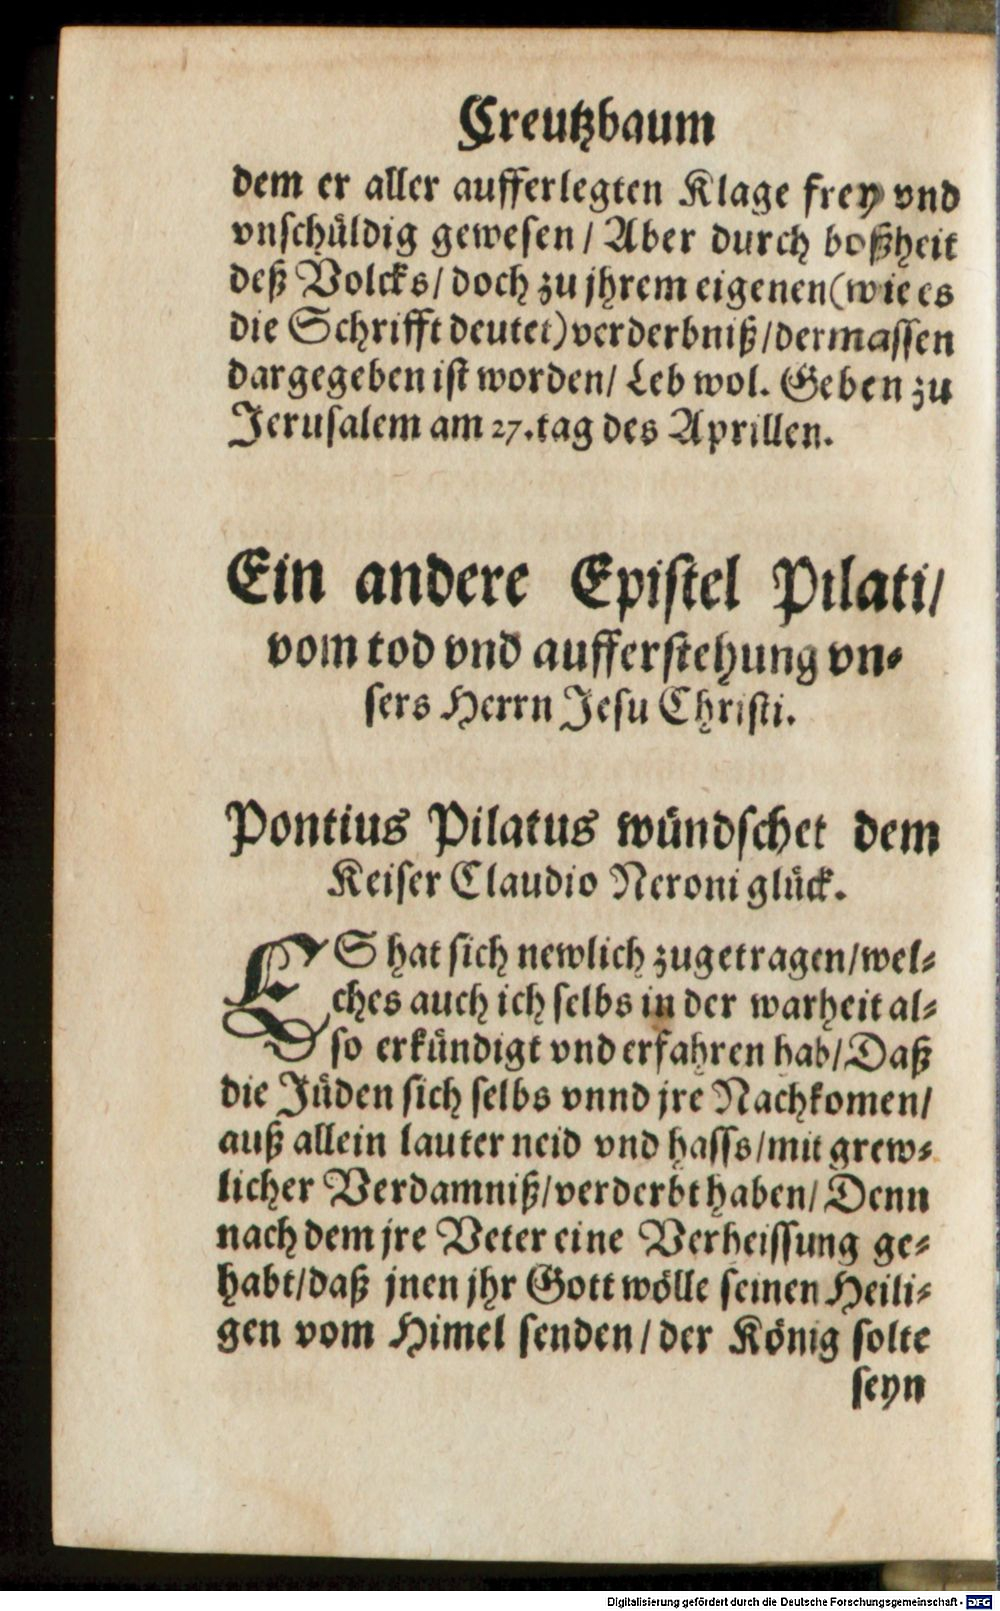 Creutzbaum
dem er aller aufferlegten Klage frey vnd
vnschüldig gewesen / Aber durch boßheit
deß Volcks / doch zu jhrem eigenen (wie es
die Schrifft deutet) verderbniß / dermassen
dargegeben ist worden / Leb wol. Geben zu
Jerusalem am 27. tag des Aprillen.
Ein andere Epistel Pilati /
vom tod vnd aufferstehung vn⸗
sers Herrn Jesu Christi.
Pontius Pilatus wündschet dem
Keiser Claudio Neroni glück.
ES hat sich newlich zugetragen / wel⸗
ches auch ich selbs in der warheit al⸗
so erkündigt vnd erfahren hab / Daß
die Jüden sich selbs vnnd jre Nachkomen /
auß allein lauter neid vnd hasss / mit grew⸗
licher Verdamniß / verderbt haben / Denn
nach dem jre Veter eine Verheissung ge⸗
habt / daß jnen jhr Gott wölle seinen Heili⸗
gen vom Himel senden / der König solte
seyn
Digitalisierung gefördert durch die Deutsche Forschungsgemeinschaft - DFG